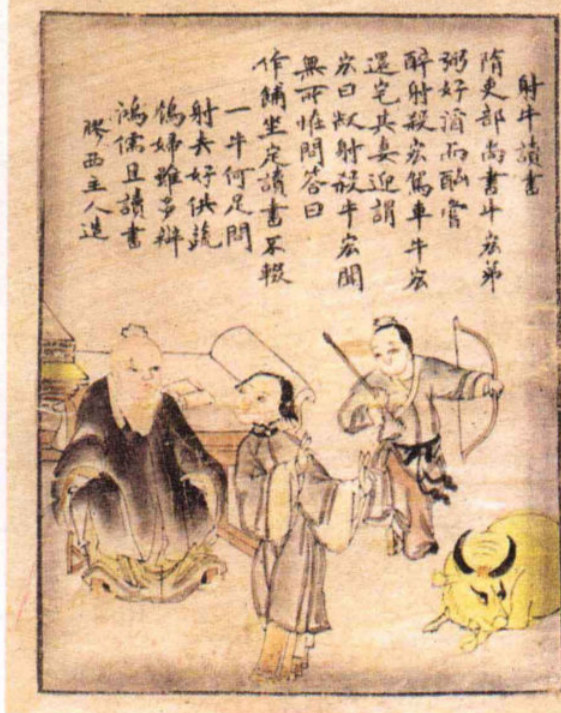 射牛讀書
隋吏部尚書牛宏弟
弼好酒而酗嘗
醉射殺宏駕車牛宏
還宅其妻迎謂
宏曰叔射殺牛宏聞
無所恠問答曰
作脯坐定讀書不輟
一牛何足問
射去好供蔬
婦雖多辯
鴻儒且讀書
膠西主人造